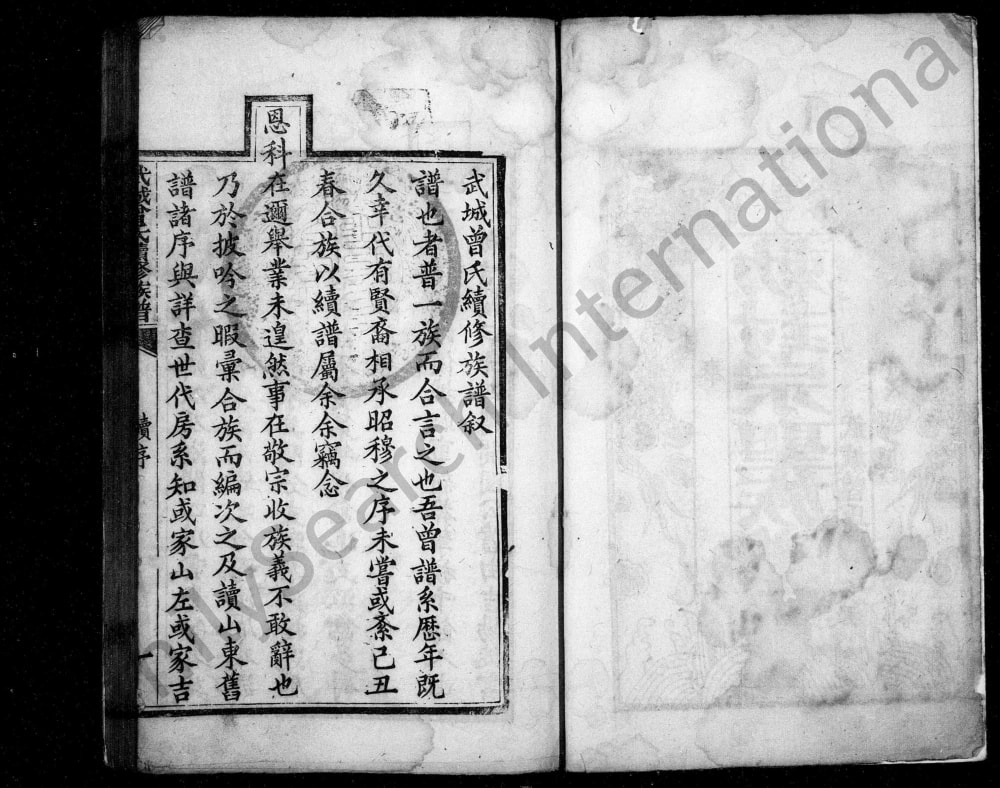 武城曾氏續修族譜叙
譜也者普一族而合言之也吾曾譜系歷年既
久幸代有賢裔相承昭穆之序未嘗或紊己丑
春合族以續譜屬余余竊念
恩科在邇舉業未遑然事在敬宗收族義不敢辭也
乃於披吟之暇彙合族而編次之及讀山東舊
譜諸序與詳查世代房系知或家山左或家吉
武城曾氏續修族譜
續序
一
FamilySearch International